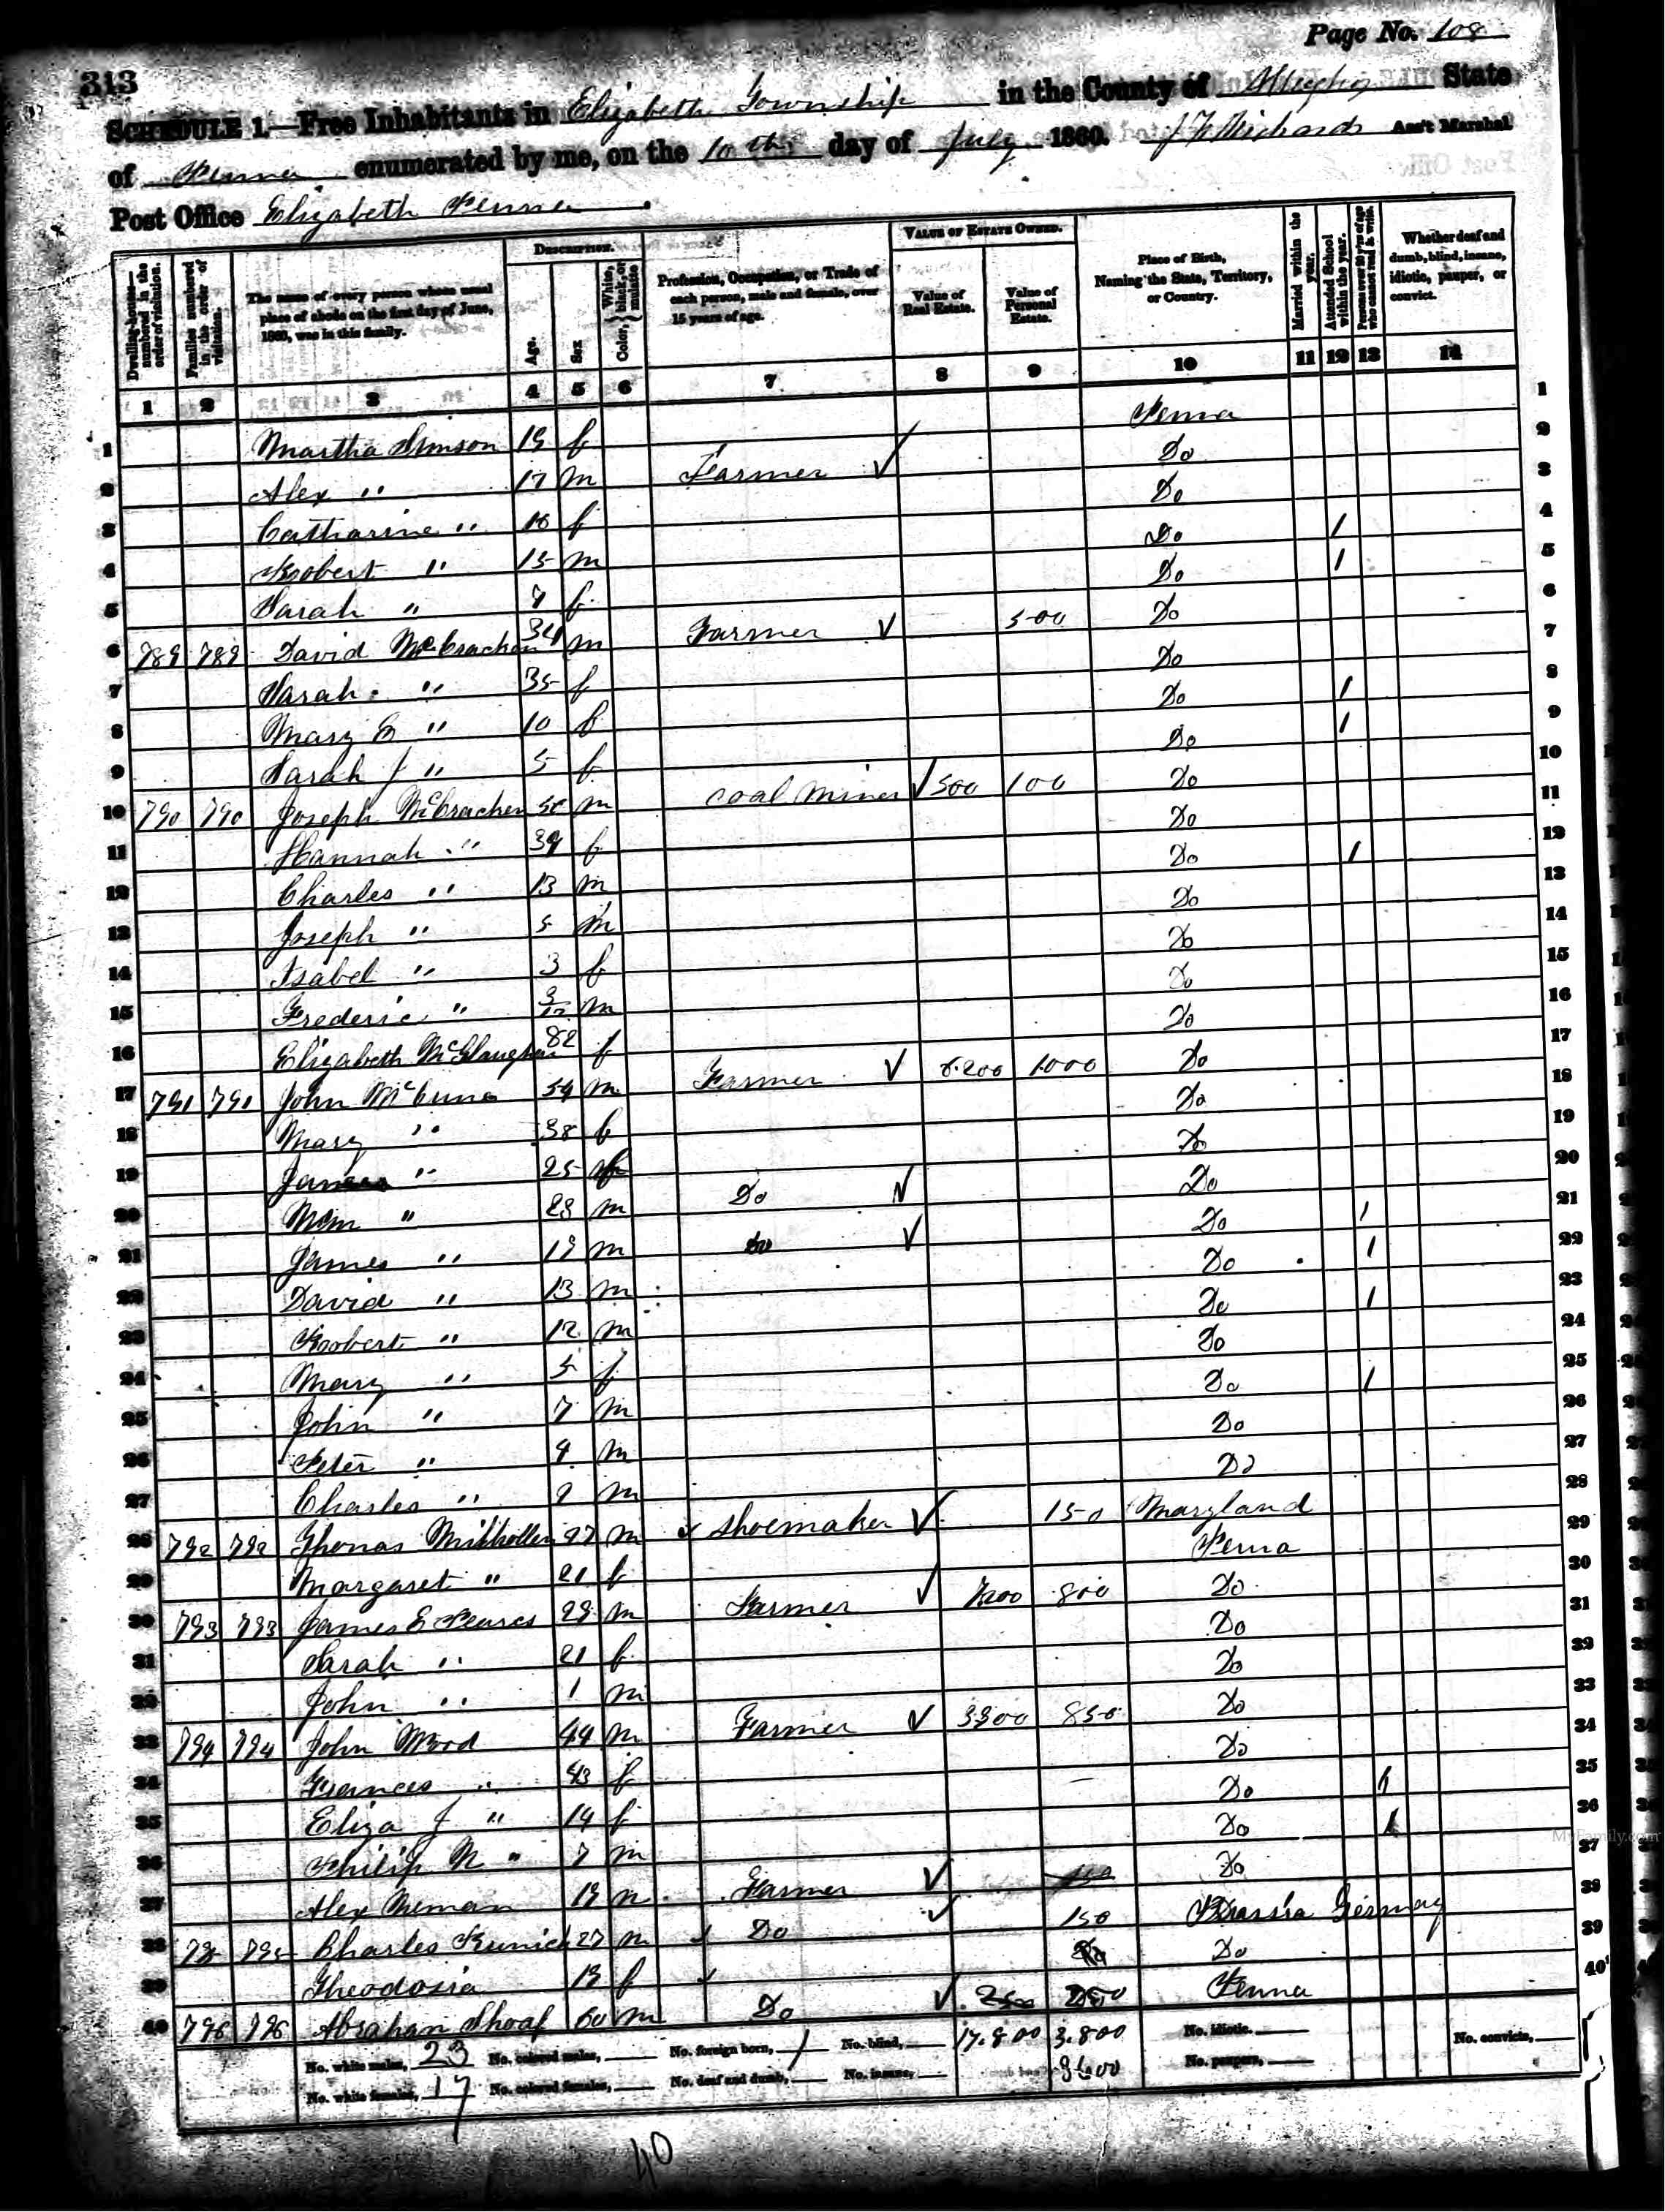 Page No. 108
313
SCHEDULE 1.—Free Inhabitants in Elizabeth Township in the County of Allegheny State
of Penna enumerated by me, on the 10th day of July 1860. Ass't Marshal
Post Office Elizabeth Penna
DESCRIPTION. VALUE OF ESTATE OWNED.
Dwelling-houses—numbered in the order of visitation. Families numbered in the order of visitation. The name of every person whose usual place of abode on the first day of June, 1860, was in this family. Age. Sex Color, White, black, or mulatto Profession, Occupation, or Trade of each person, male and female, over 15 years of age. Value of Real Estate. Value of Personal Estate. Place of Birth, Naming the State, Territory, or Country. Married within the year. Attended School within the year. Persons over 20 y'rs of age who cannot read & write. Whether deaf and dumb, blind, insane, idiotic, pauper, or convict.
1 2 3 4 5 6 7 8 9 10 11 12 13 14
1 Martha 19 f Penna 1
2 Alex " 17 m Farmer Do 2
3 Catharine " 16 f Do 3
4 Robert " 15 m Do 1 4
5 Sarah " 7 f Do 1 5
6 789 789 David McCracken 34 m Farmer 500 Do 6
7 Sarah " 35 f Do 7
8 Mary E " 10 f Do 1 8
9 Sarah J " 5 f Do 1 9
10 790 790 Joseph McCracken m coal miner 500 100 Do 10
11 Hannah " 39 f Do 11
12 Charles " 13 m Do 1 12
13 Joseph " 5 m Do 13
14 Isabel " 3 f Do 14
15 Frederic " m Do 15
16 Elizabeth 82 f Do 16
17 791 791 John McCune 54 m Farmer 6.200 1000 Do 17
18 Mary " 38 f Do 18
19 " 25 Do 19
20 Wm " 23 m Do Do 20
21 James " 19 m Do Do 1 21
22 David " 13 m Do 1 22
23 Robert " 12 m Do 1 23
24 Mary " 5 f Do 24
25 John " 7 m Do 1 25
26 Peter " 4 m Do 26
27 Charles " m Do 27
28 792 792 Thomas 27 m shoemaker 150 Maryland 28
29 Margaret " 21 f Penna 29
30 793 793 James E Pearce 29 m Farmer 800 Do 30
31 Sarah " 21 f Do 31
32 John " 1 m Do 32
33 794 794 John Wood 44 m Farmer 3300 850 Do 33
34 Frances " 43 f Do 34
35 Eliza J " 14 f Do 1 35
36 Philip N " 7 m Do 1 36
37 Alex 19 m Farmer Do 37
38 795 795 Charles 27 m Do 150 Prussia Germany 38
39 Theodosia 19 f Do 39
40 796 796 Abraham Shoaf 60 m Do Penna 40
No. white males, 23 No. colored males, No. foreign born, 1 No. blind, 17.800 3.800 No. idiotic. No. convicts,
No. white females, 17 No. colored females, No. deaf and dumb, No. insane, No. paupers,
40
MyFamily.com